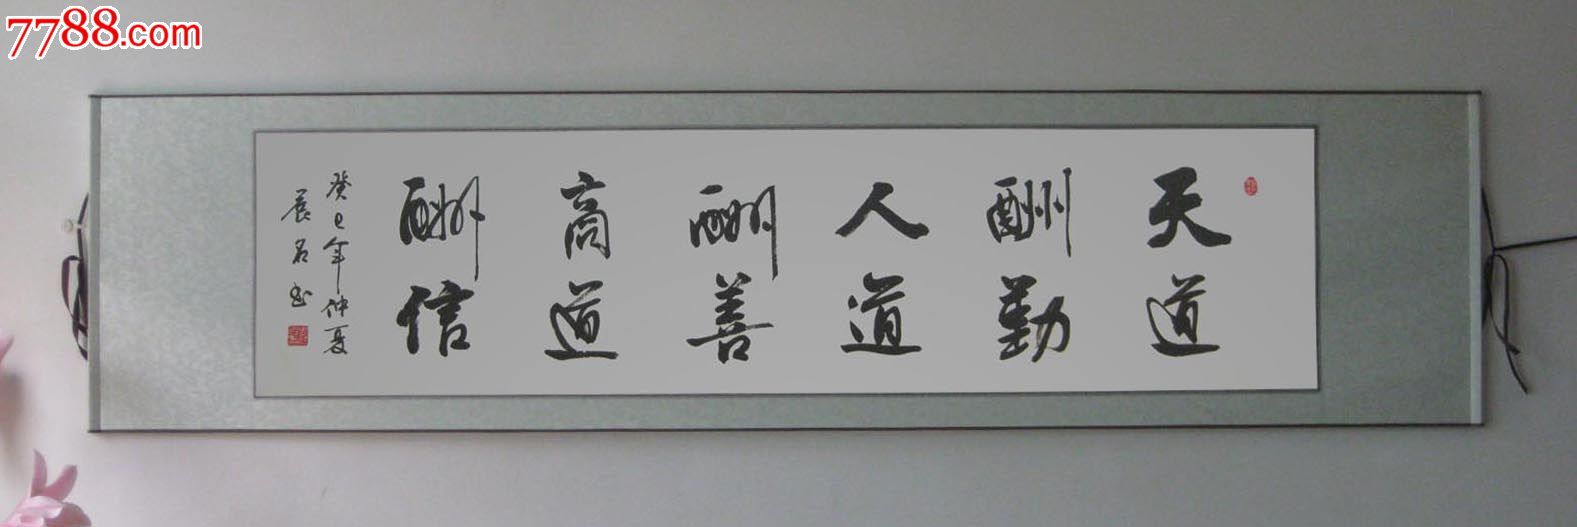 7788.com
天道
酬勤
人道
酬善
商道
酬信
癸巳年仲夏